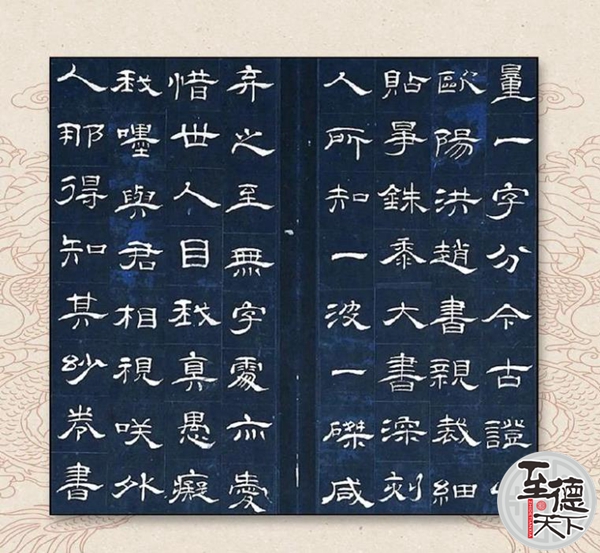 量一字分今古證
歐陽洪趙書親裁細
貼銖黍大書深刻
人所知一波一磔咸
弃之至無字處亦愛
惜世人目我真愚癡
我嘿與君相視咲外
人那得知其玅書
至德天下